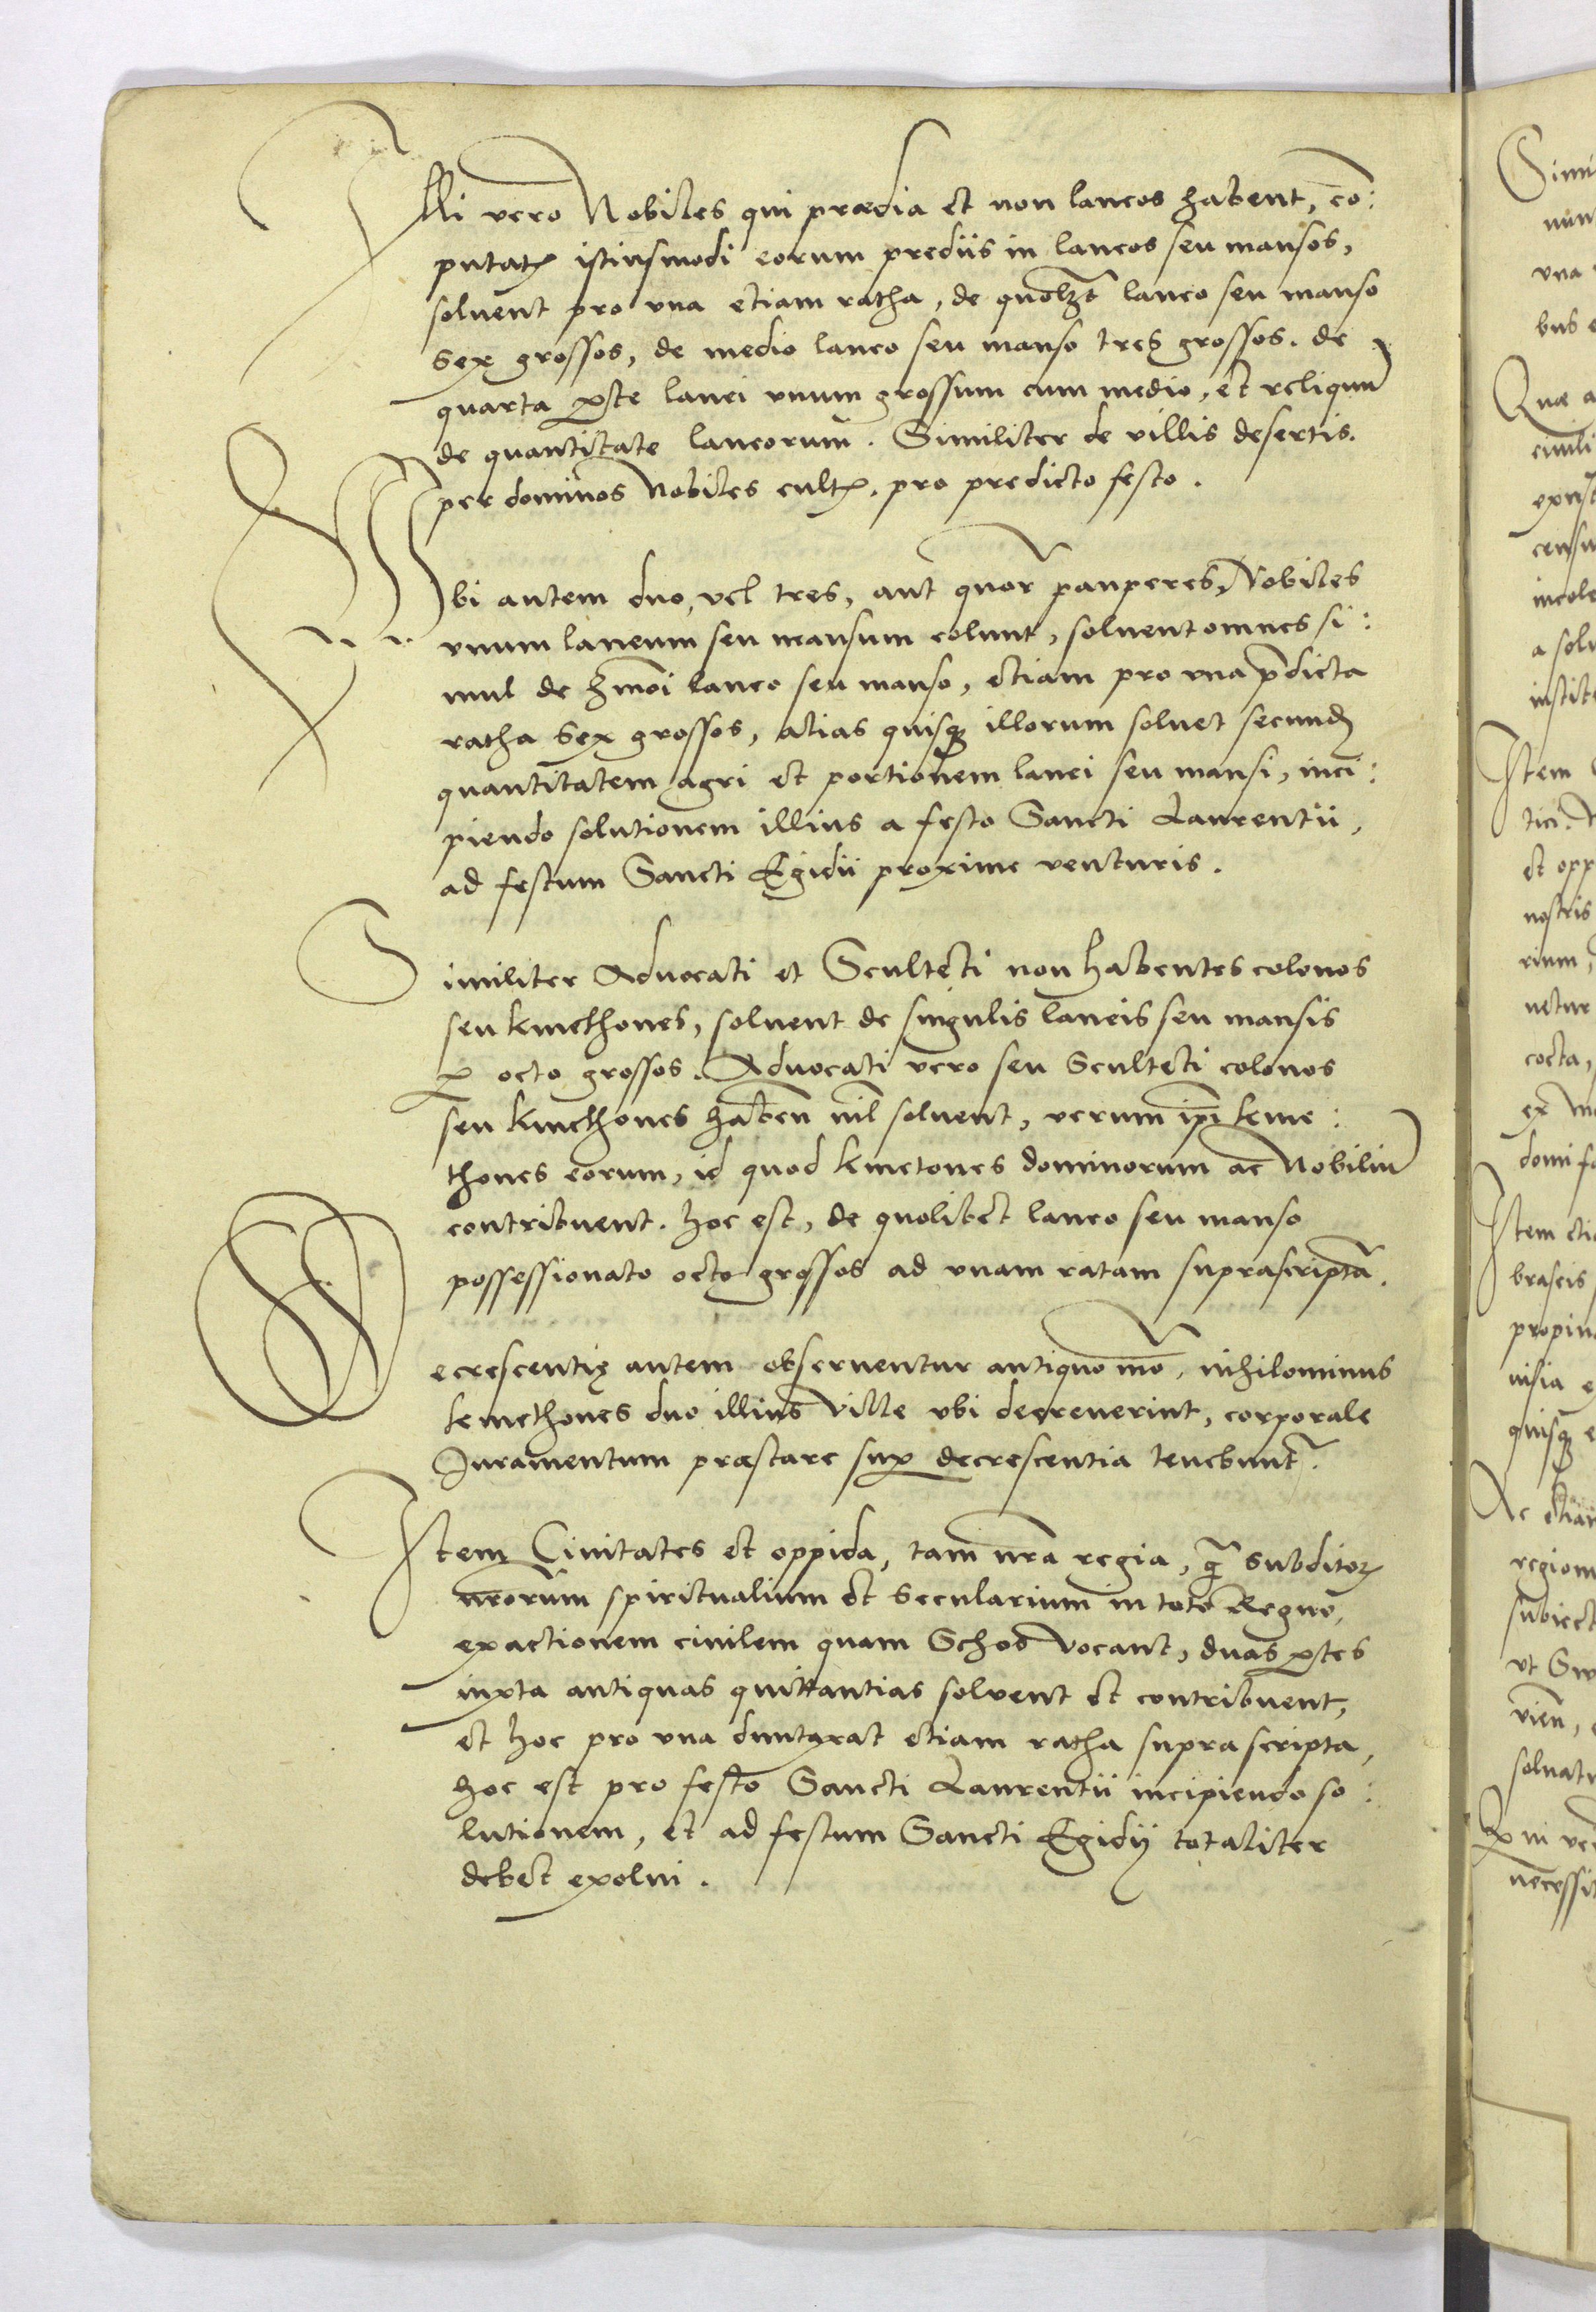 Illi vero Nobiles qui prædia et non laneos habent, cō:
putatꝭ istiusmodi eorum prediis in laneos seu mansos,
soluent pro una etiam ratha, de quolꝫt laneo seu manso
sex grossos, de medio laneo seu manso tres grossos. de
quarta ꝑte lanei vnum grossum cum medio, et reliquū
de quantitate laneorum. Similiter de villis desertis.
per dominos Nobiles cultꝭ, pro predicto festo.
Vbi autem duo, vel tres, aut quōr pauperes Nobiles
vnum laneum seu mansum colunt, soluent omnes si:
mul de hmōi laneo seu manso, etiam pro una p̄dicta
ratha sex grossos, alias quisqꝫ illorum soluet secundꝭ
quantitatem agri et portionem lanei seu mansi, inci:
piendo solutionem illius a festo Sancti Laurentii,
ad festum Sancti Egidii proxime venturis.
Similiter Aduocati et Sculteti non habentes colonos
seu kmethones, soluent de singulis laneis seu mansis
ꝑ octo grossos. Aduocati vero seu Sculteti colonos
seu kmethones habeñ nīl soluent, verum ip̄i keme:
thones eorum, id quod kmetones dominorum ac Nobiliū
contribuent. hoc est, de quolibet laneo seu manso
possessionato octo grossos ad vnam ratam suprascriptā.
Decrescentię autem obseruentur antiquo mō, nihilominus
kemethones duo illius Ville vbi decreuerint, corporale
Iuramentum præstare suꝑ decrescentia tenebunt̄.
Item Ciuitates et oppida, tam nr̄a regia, q̄ subditoꝝ
nr̄orum spiritualium et secularium in toto Regno,
exactionem ciuilem quam Schos vocant, duas ꝑtes
iuxta antiquas quittantias soluent et contribuent,
et hoc pro vna duntaxat etiam ratha supra scripta,
hoc est pro festo Sancti Laurentii incipiendo so:
lutionem, et ad festum Sancti Egidij totaliter
debet exolui.